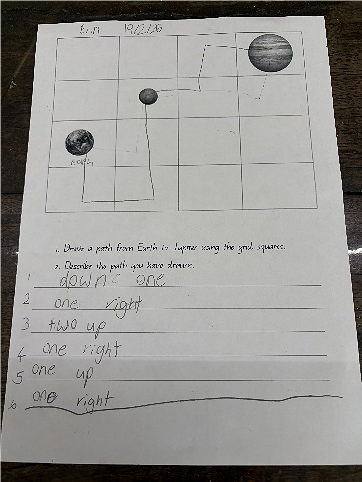 Erin 19/2/26
Earth
1. Draw a path from Earth to Jupiter using the grid squares.
2. Describe the path you have drawn.
1 down one
2 one right
3 two up
4 one right
5 one up
6 one right